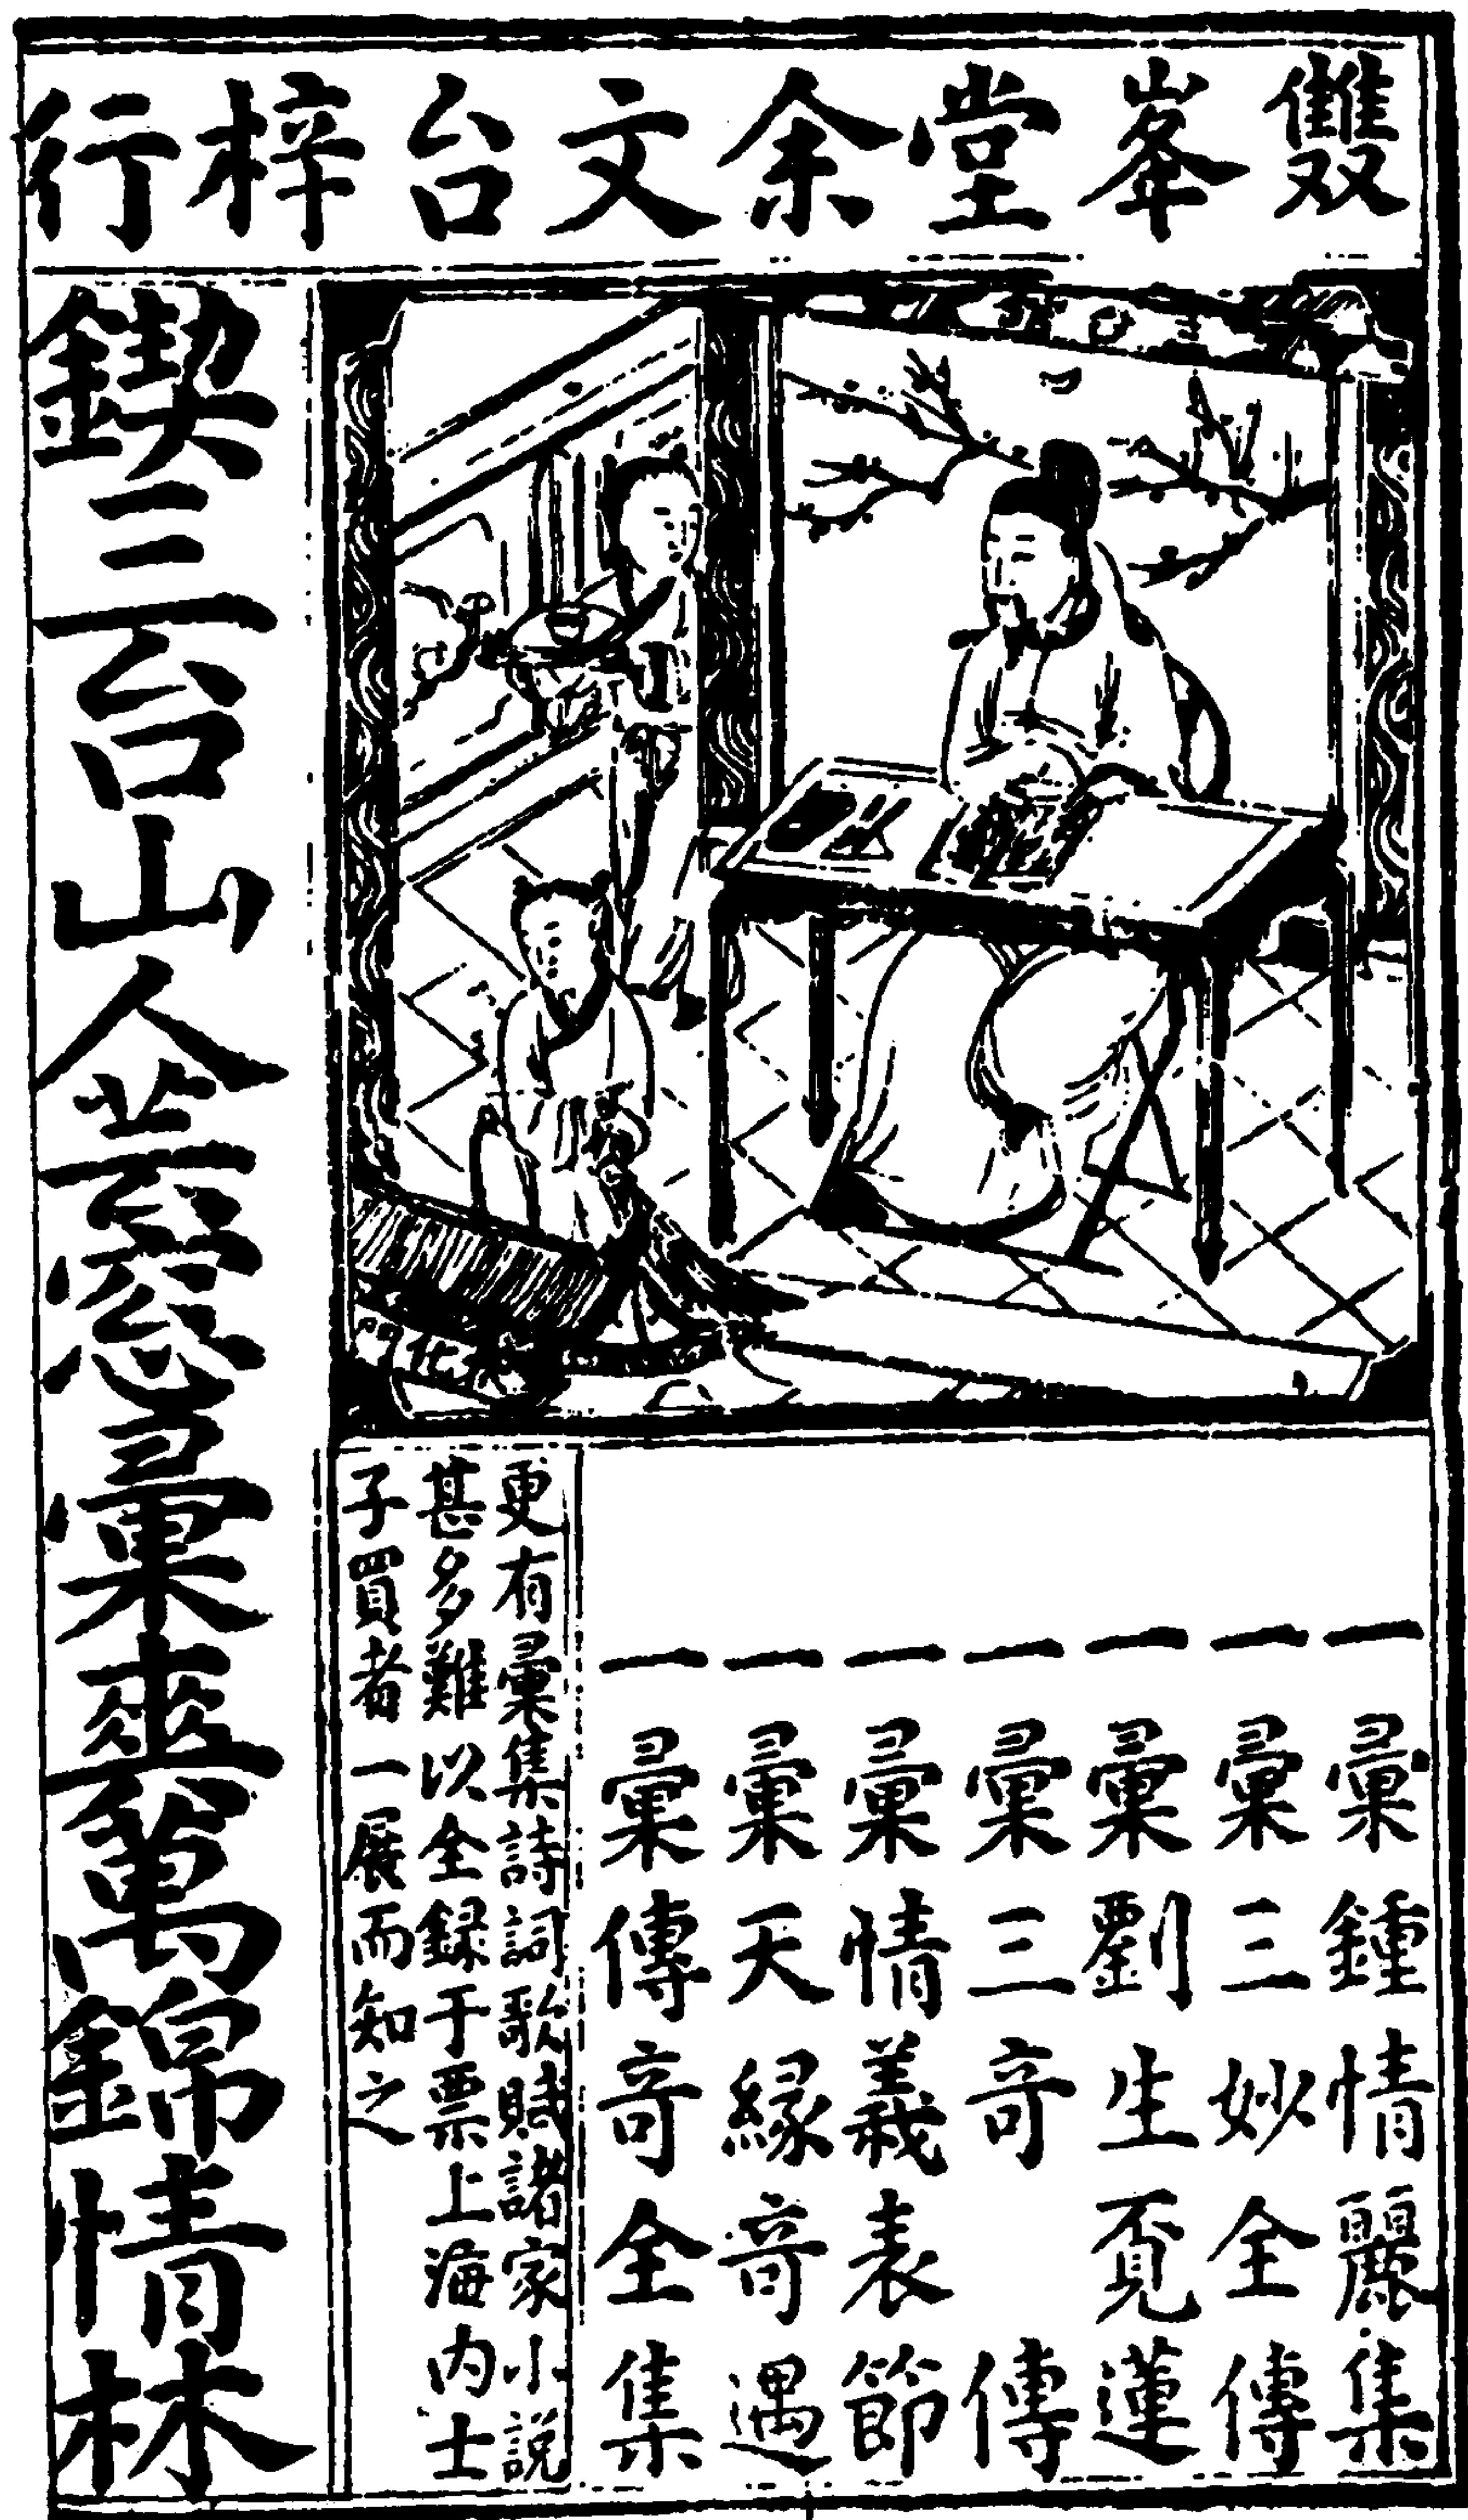 雙峯堂余文台梓行
一彚鍾情麗集
一彚三妙全傳
一彚劉生覔蓮
一彚三奇傳
一彚情義表節
一彚天緣奇遇
一彚傳奇全集
更有彚集詩詞歌賦諸家小説
甚多難以全録于票上海内士
子買者一展而知之
鍥三台山人芸窓彚爽萬錦情林